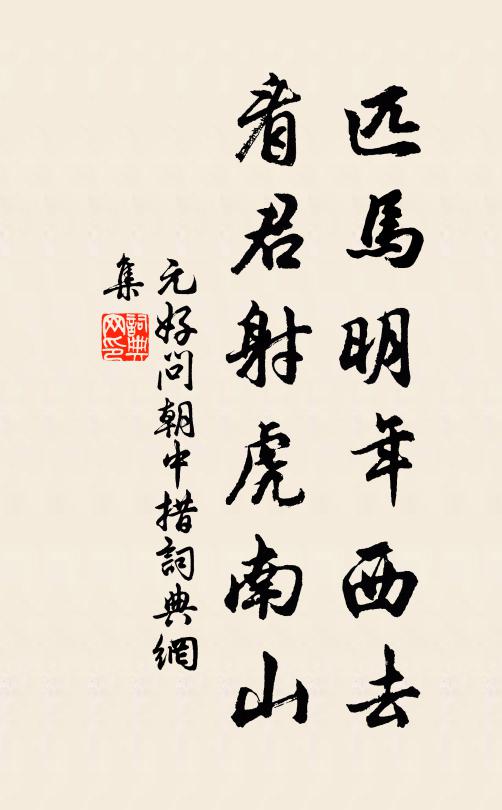 匹馬明年西去
看君射虎南山
元好問朝中措詞典網
集
詞典
网印